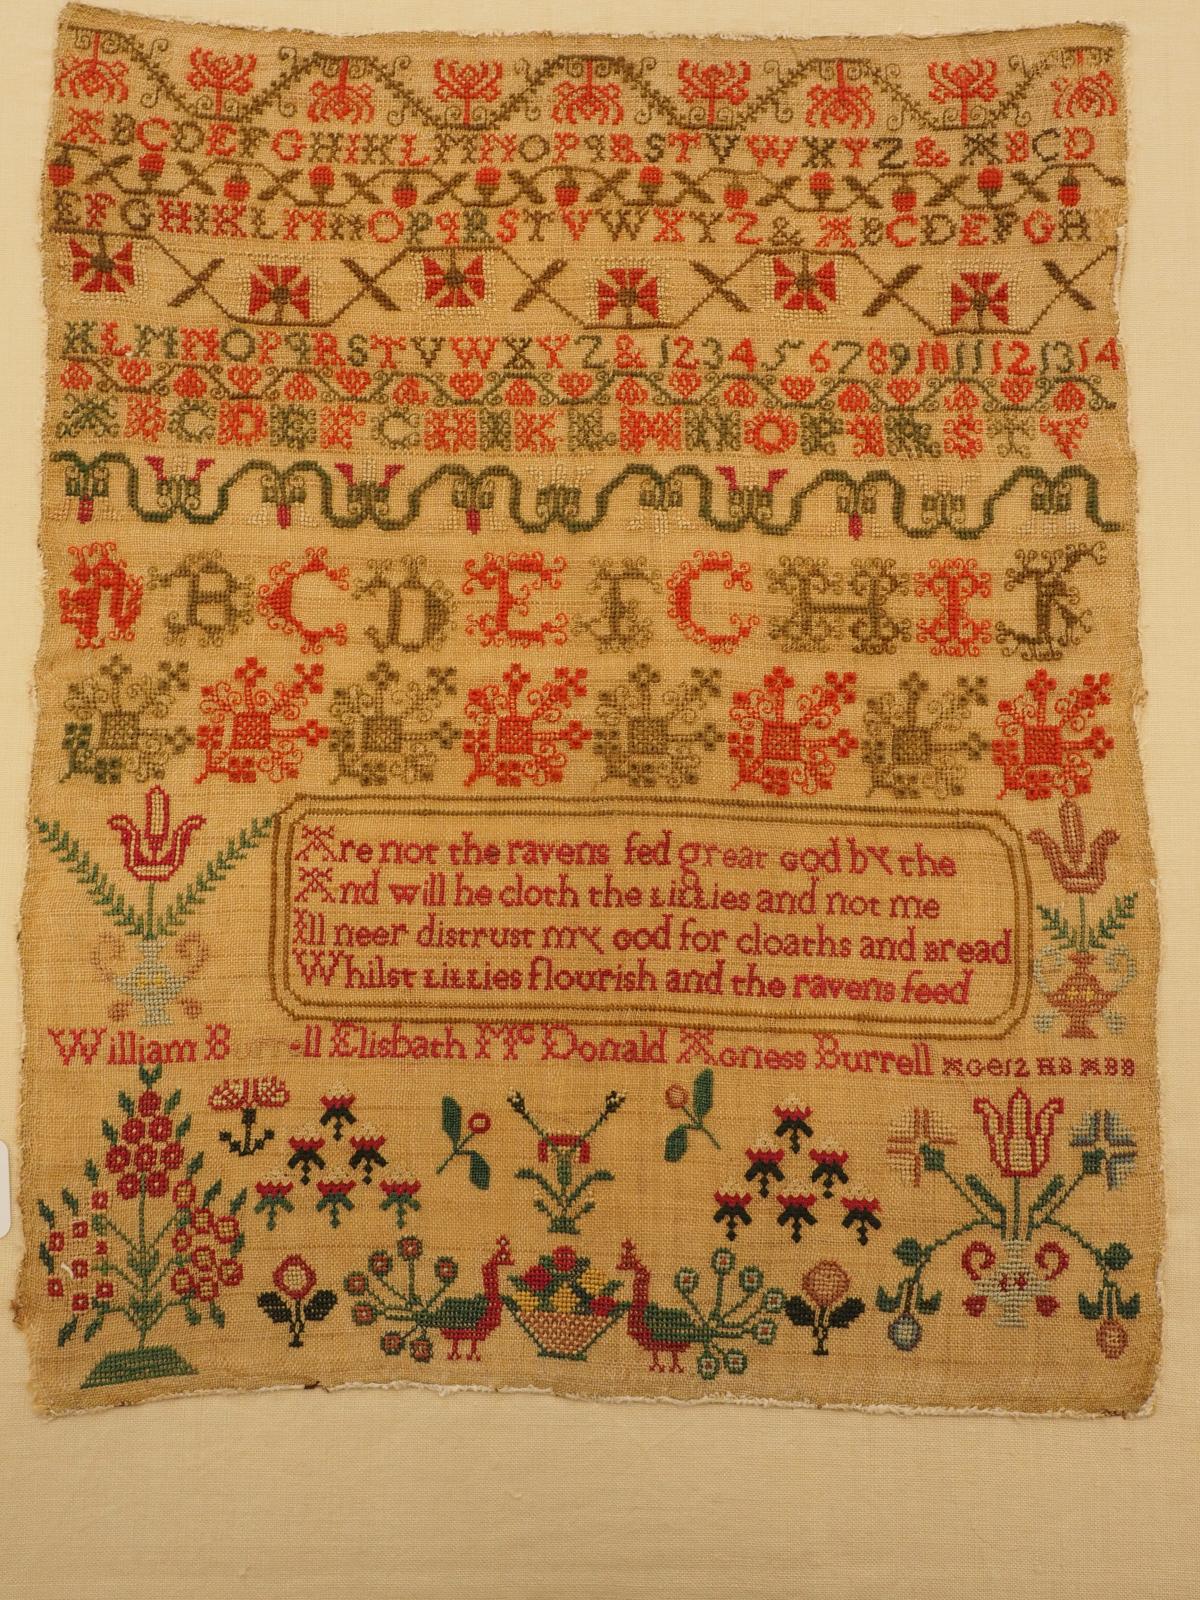 ABCDEFGHIKLMNOPQRSTVWXYZ & ABCD
EFGHIKLMNOPQRSTVWXYZ & ABCDEFGH
KLMNOPQRSTVWXYZ & 1234567891011121314
ABCDEFGHIKLMNOPQRSTV
ABCDEFGHIK
Are not the ravens fed great God by the
And will he cloth the Lillies and not me
Ill neer distrust my God for cloaths and Bread
Whilst Lillies flourish and the ravens feed
William Elisbath Mc Donald Agness Burrell AGe12 HB ABB